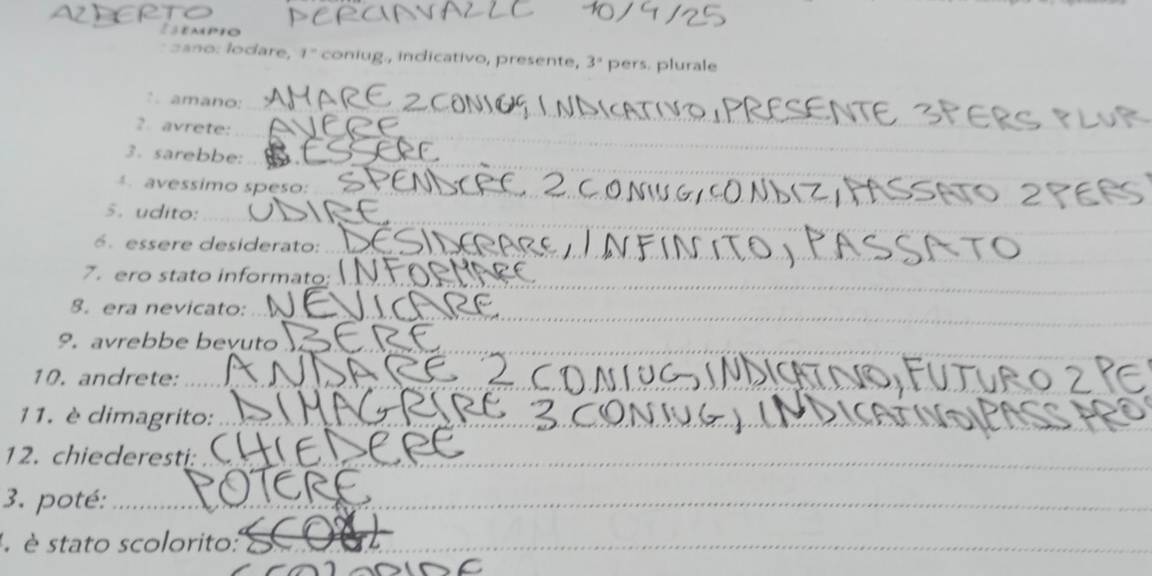 ALBERTO PERCIAVALLE 10/4/25
ESEMPIO
lodare, 1ª coniug., indicativo, presente, 3ª pers. plurale
1. amano: AMARE 2 CONIUG INDICATIVO, PRESENTE 3 PERS PLUR
2. avrete: AVERE
3. sarebbe: ESSERE
4. avessimo speso: SPENDERE 2 CONIUG, CONDIZ, PASSATO 2 PERS
5. udito: UDIRE
6. essere desiderato: DESIDERARE, INFINITO, PASSATO
7. ero stato informato: INFORMARE
8. era nevicato: NEVICARE
9. avrebbe bevuto BERE
10. andrete: ANDARE 2 CONIUG INDICATIVO, FUTURO 2 PE
11. è dimagrito: DIMAGRIRE 3 CONIUG, INDICATIVO, PASS PRO
12. chiederesti: CHIEDERE
3. poté: POTERE
. è stato scolorito:
SCOLORIRE